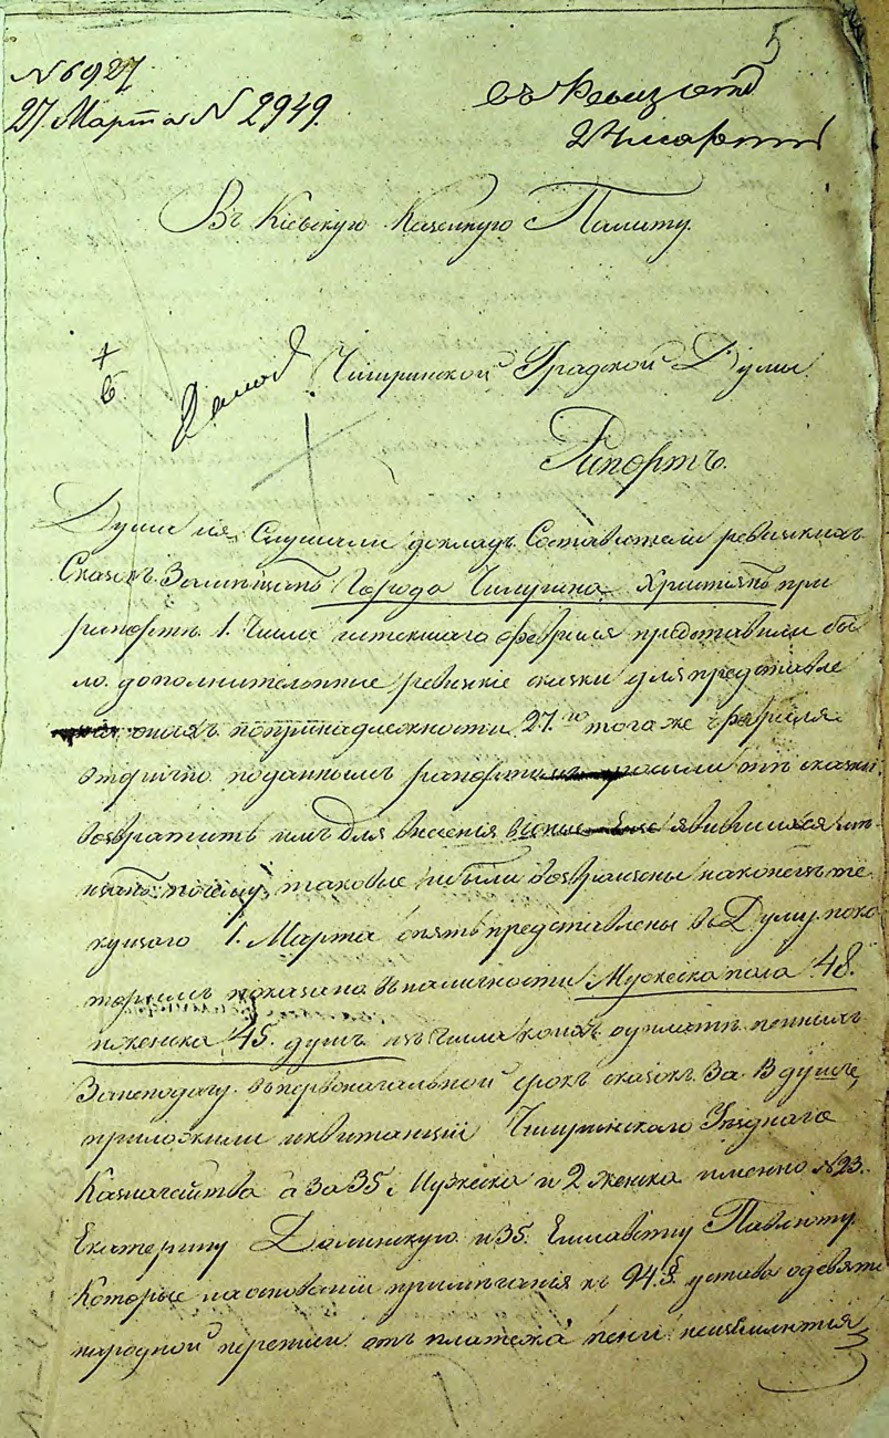 5
N 6927
27 Марта N 2949.
въ Ревиз
24 марта
Въ Кіевскую Казенную Палату.
+
6
Чигринской Градской Думы
Рапортъ.
Дума сія, Слушали докладъ. Составители ревизскихъ
Сказокъ. За мещанъ Города Чигирина Христіянъ при
рапорте. 1. Числа истекшаго февраля представили бы
ло. дополнительные ревизкіе сказки для представле
онихъ. попринадлежности 27.го тогаже февраля
вторично поданнымъ рапортомъ просили те сказки
возвратить имъ для внесенія вновь явившихся ме
щанъ. почему, таковые и были возвращены наконецъ те
кущаго 1. Марта опять представлены въ Думу. поко
торымъ показано въ наличности Мужеска пола 48.
и женска 45. душъ. изъ числа коихъ о уплате пенныхъ
За неподачу. въ первоначальной срокъ сказокъ. За. 13 душъ,
приложили квитанціи Чигринскаго Уезднаго
Казначейства а За 35, Мужеска и 2 женска именно №23.
Екатерину Долинскую и 35. Елисавету Павлюту.
Которые на основаніи примечанія къ 94.§. устава о девятой
народной переписи. отъ платежа пени